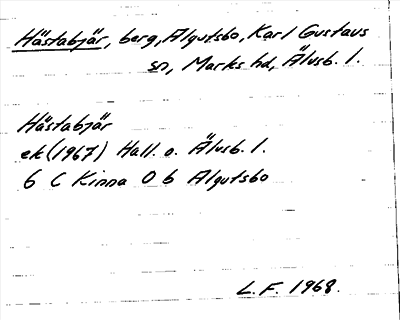 Hästabjär, berg, Algutsbo, Karl Gustavs
sn, Marks hd, Älvsb. l.
Hästabjär
ek (1967) Hall. o. Älvsb. l.
6 C Kinna 0 b Algutsbo
L.F. 1968.